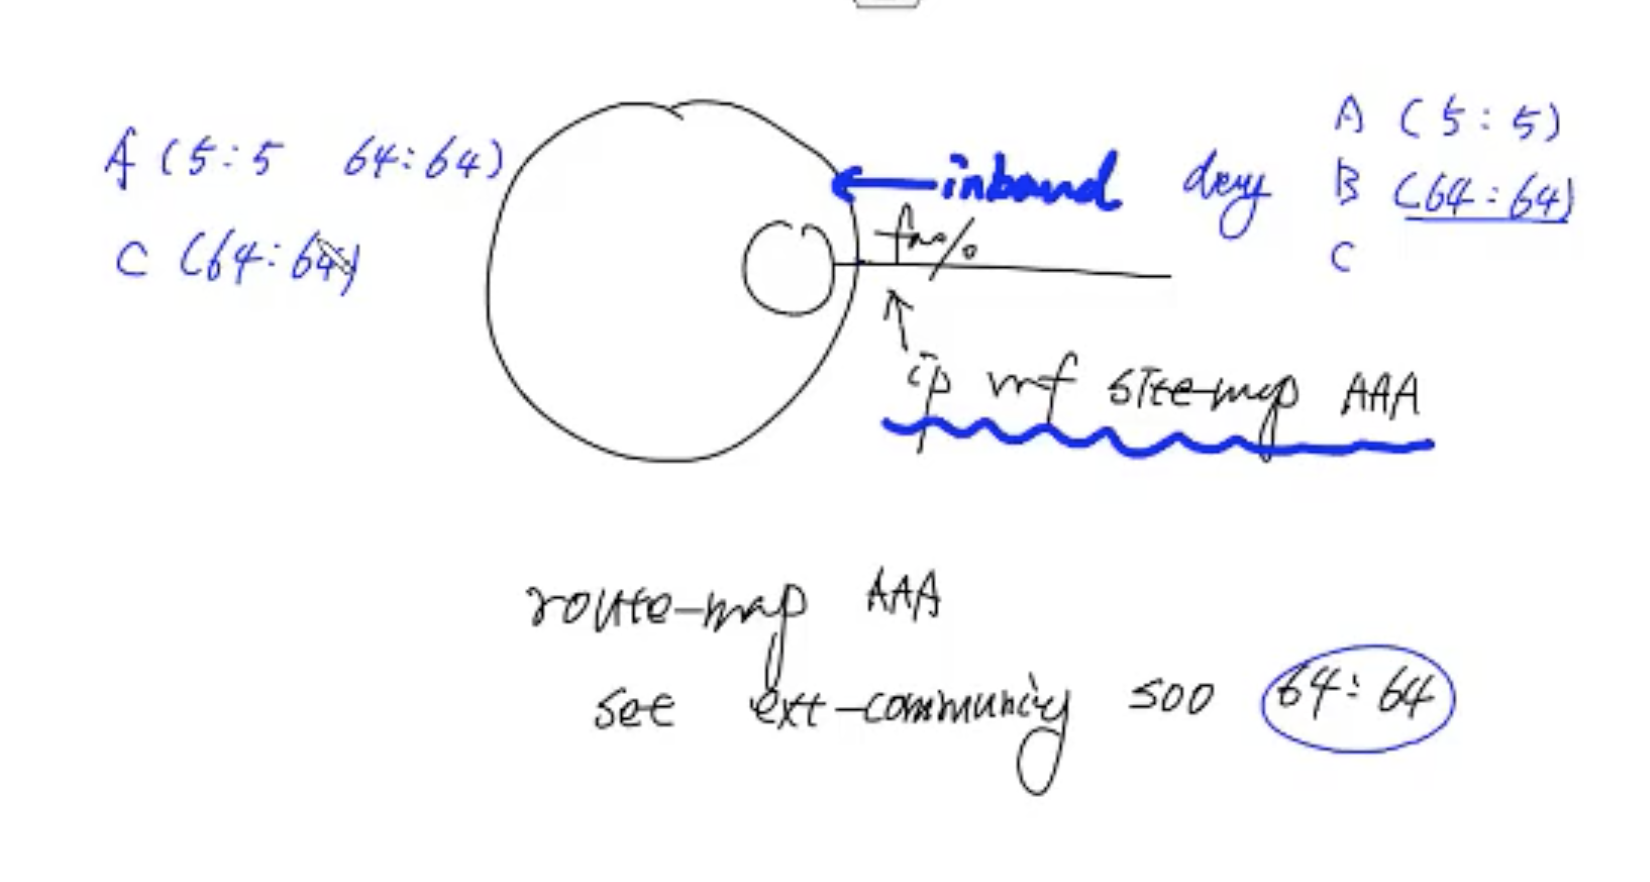 A (5:5 64:64)
C (64:64)
inbound deny
A (5:5)
B (64:64)
C
f0/0
ip vrf site-map AAA
route-map AAA
set ext-community soo 64:64